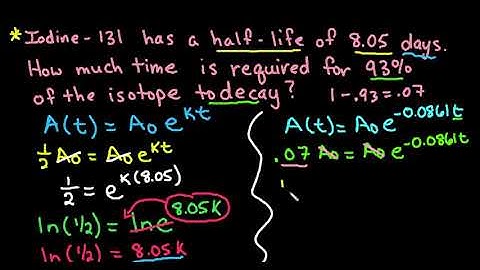 * Iodine-131 has a half-life of 8.05 days.
How much time is required for 93%
of the isotope to decay? 1-.93=.07
A(t)=A₀e^{kt}
½A₀=A₀e^{kt}
½=e^{k(8.05)}
ln(½)=ln e^{8.05k}
ln(½)=8.05k
A(t)=A₀e^{-0.0861t}
.07A₀=A₀e^{-0.0861t}